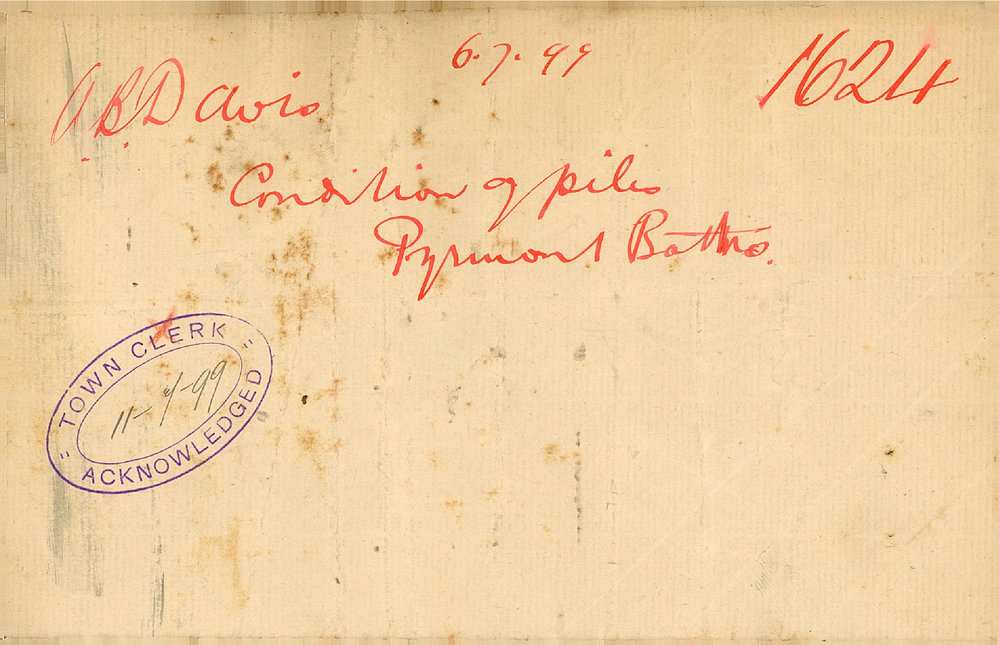 A. B. Davis
6.7.99
1624
Condition of piles
Pyrmont Baths.
TOWN CLERK
11-7-99
ACKNOWLEDGED